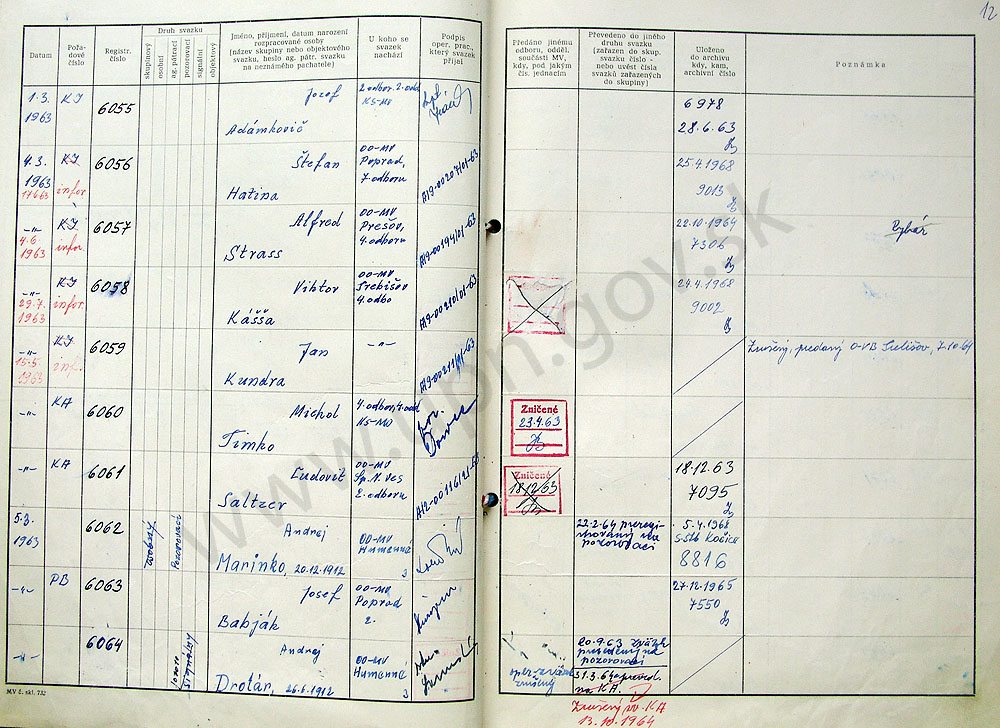 12
Datum
Pořa-
dové
číslo
Registr.
číslo
Druh svazku
skupinový
osobní
ag. pátrací
pozorovací
signální
objektový
Jméno, příjmení, datum narození
rozpracované osoby
(název skupiny nebo objektového
svazku, heslo ag. pátr. svazku
na neznámého pachatele)
U koho se
svazek
nachází
Podpis
oper. prac.,
který svazek
přijal
Předáno jinému
odboru, odděl.
součásti MV,
kdy, pod jakým
čís. jednacím
Převedeno do jiného
druhu svazku
(zařazen do skup.
svazku číslo -
nebo uvést čísla
svazků zařazených
do skupiny)
Uloženo
do archivu
kdy, kam,
archivní číslo
Poznámka
1.3.
1963
KI
6055
Jozef
Adámkovič
2 odbor, 2. odd
KS-MV
6978
28.6.63
4.3.
1963
KI
infor
6056
Štefan
Hatina
OO-MV
Poprad,
7 odboru
A19-00207/01-63
25.4.1968
9013
-"-
4.6.
1963
KI
infor.
6057
Alfred
Strass
OO-MV
Prešov,
4. odboru
A19-00194/01-63
22.10.1964
7306
Rybár
-"-
29.7.
1963
KI
infor.
6058
Viktor
Kášša
OO-MV
Trebišov
4. odbo
A19-00210/01-63
24.4.1968
9002
-"-
15.5.
1963
KI
inf.
6059
Jan
Kundra
-"-
A19-00211/01-63
Zrušený, predaný O-VB Trebišov, 7.10.64
-"-
KA
6060
Michal
Timko
4. odbor, 4. odd
KS-MV
Zničené
23.4.63
-"-
KA
6061
Ľudovit
Saltzer
OO-MV
Sp. N. Ves
2. odboru
A12-00116/21-63
Zničené
18.12.63
18.12.63
7095
5.3.
1963
6062
osobný
Pozorovací
Andrej
Marinko, 20.12.1912
OO-MV
Humenné
3
22.2.64 preregi-
strovaný na
pozorovací
5.4.1968
S-StB Košice
8816
-"-
PB
6063
Josef
Babják
OO-MV
Poprad
2.
27.12.1965
7550
-"-
6064
signálny
Andrej
Drotár, 26.6.1912
OO-MV
Humenné
3
oper. zväzok
zrušený
20.9.63 zväzok
prevedený na
pozorovací
31.3.64 preved.
na KA.
Zrušený vo KA
13.10.1964
MV č. skl. 732
www.upn.gov.sk